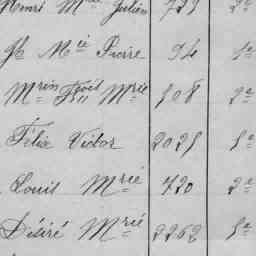 Henri M^rie Julien 727 2e
Jh M^ie Pierre 94 1e
M^rin F^çois M^rie 108 2e
Félix Victor 2025 1e
Louis M^rie 720 2e
Désiré M^rie 2262 1e